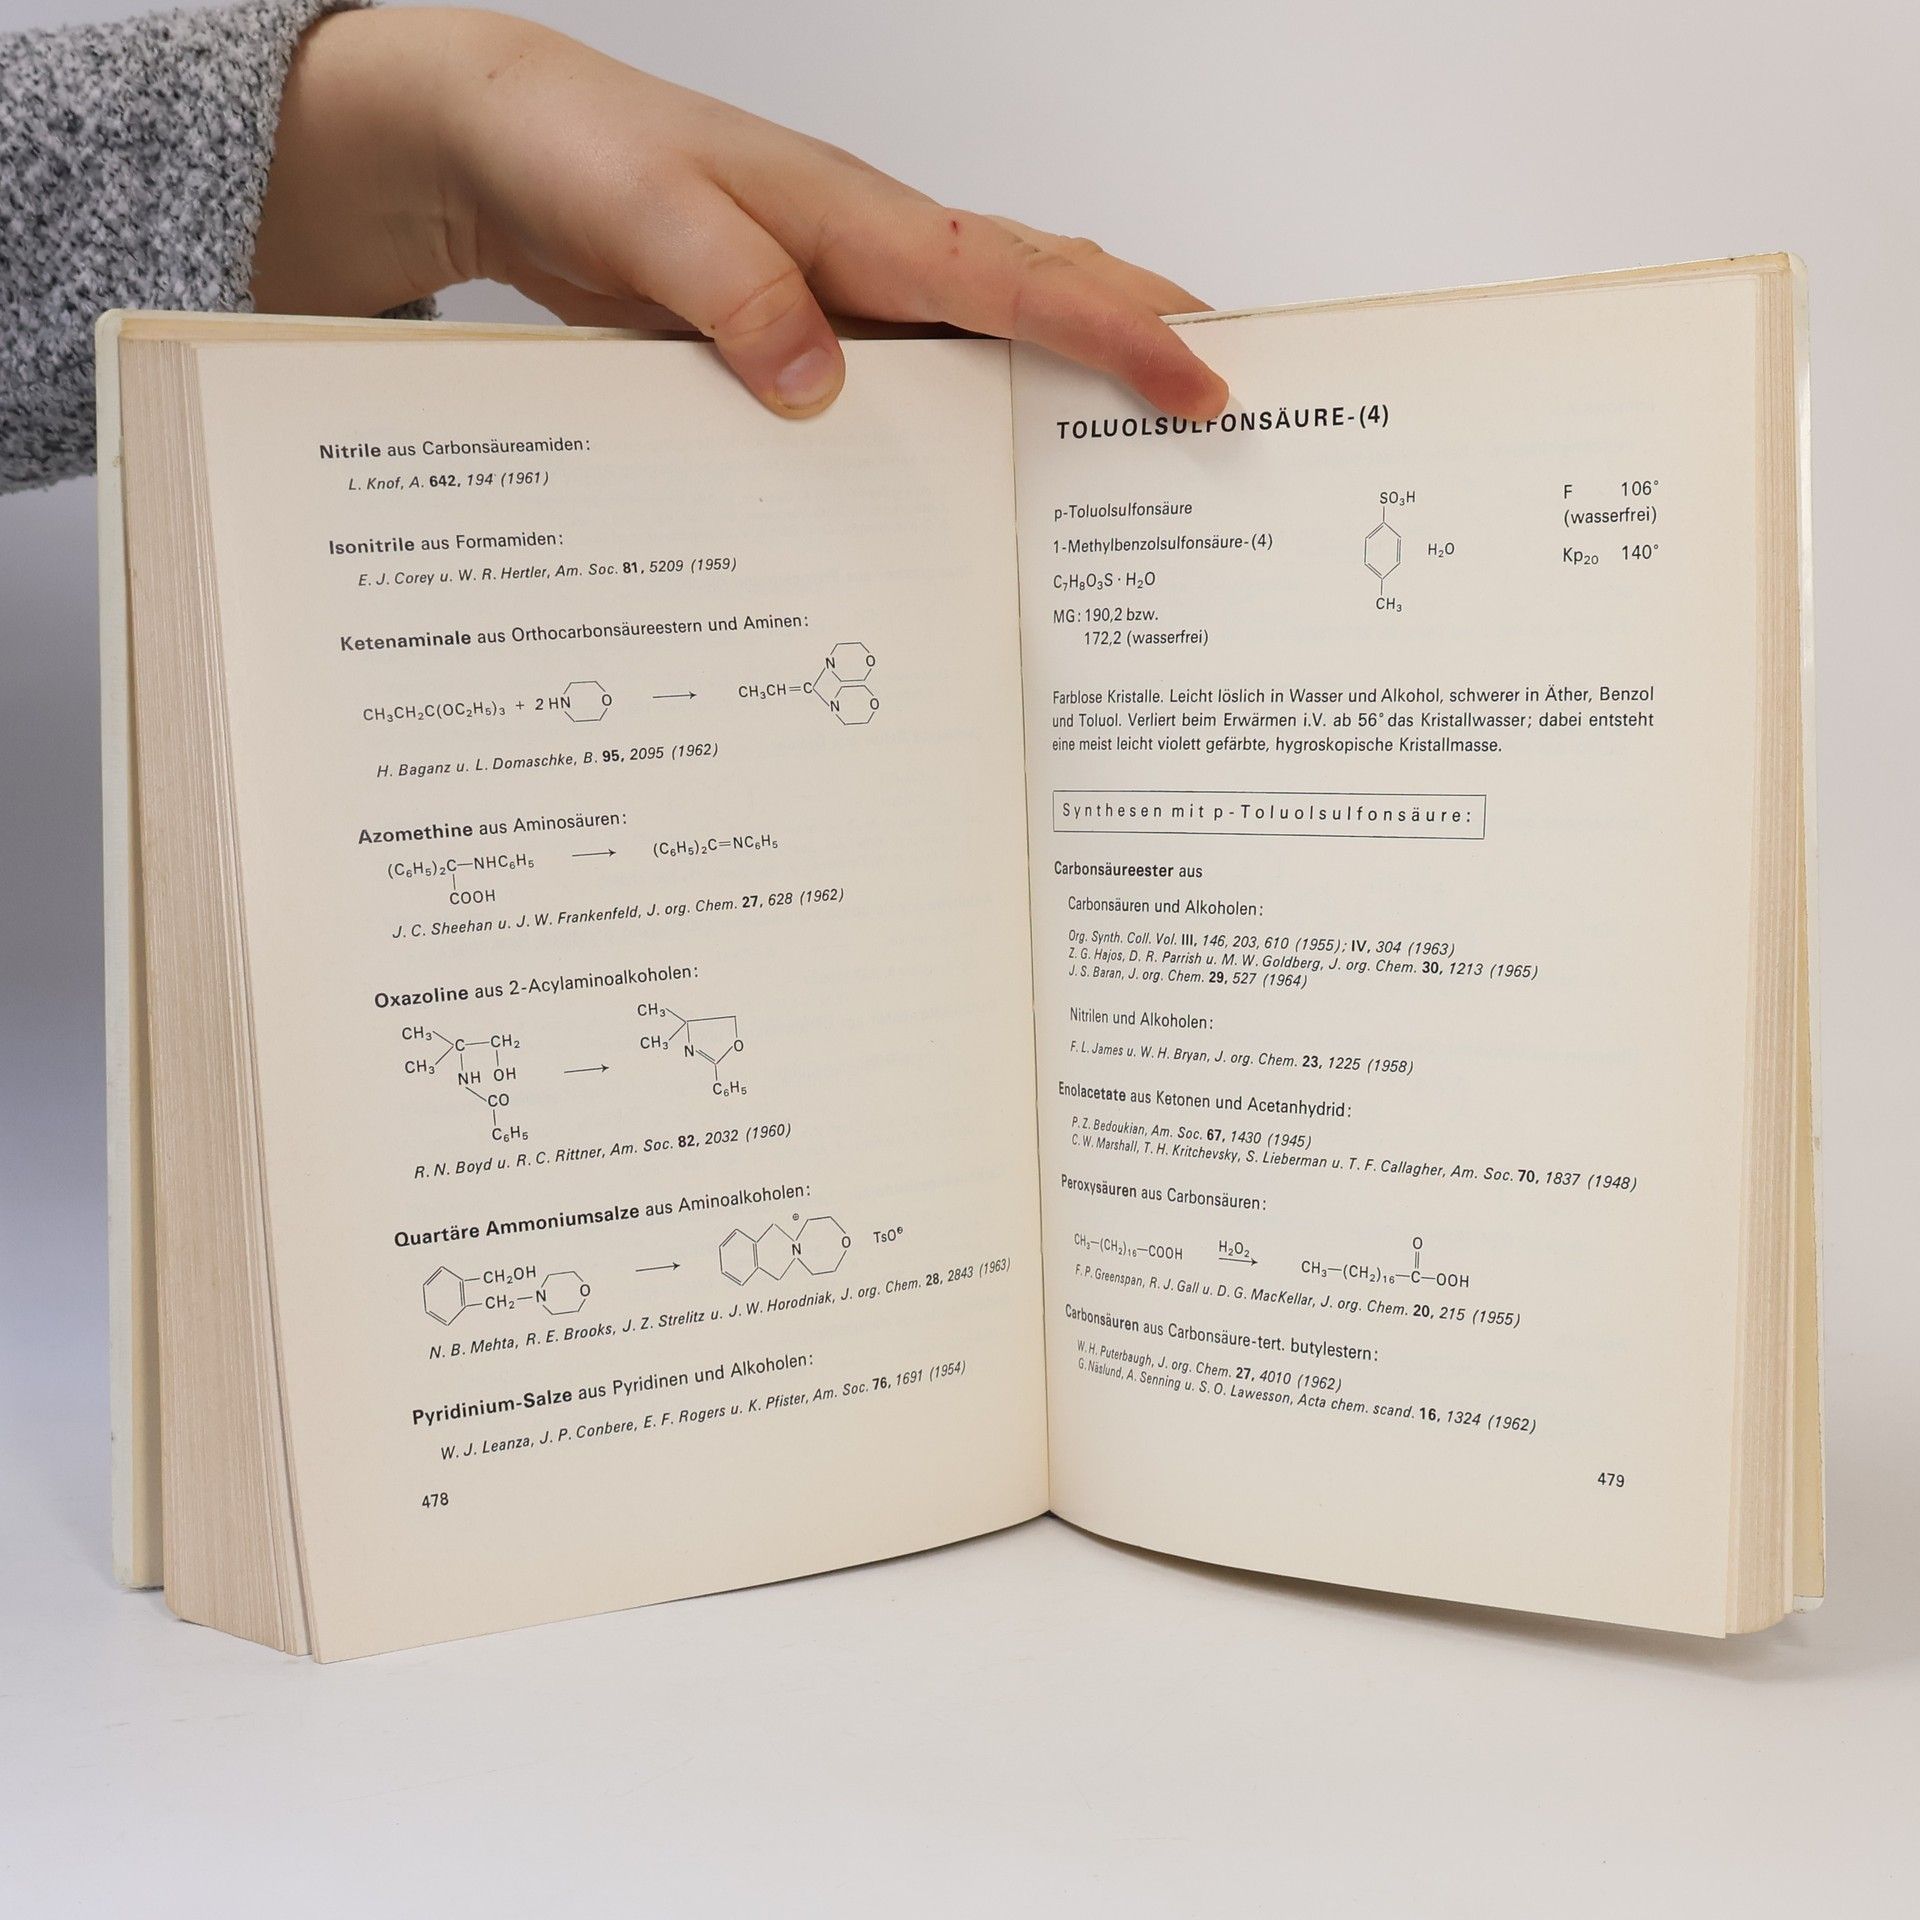 Nitrile aus Carbonsäureamiden:
L. Knof, A. 642, 194 (1961)
Isonitrile aus Formamiden:
E. J. Corey u. W. R. Hertler, Am. Soc. 81, 5209 (1959)
Ketenaminale aus Orthocarbonsäureestern und Aminen:
CH₃CH₂C(OC₂H₅)₃ + 2 HN O → CH₃CH=C N O N O
H. Baganz u. L. Domaschke, B. 95, 2095 (1962)
Azomethine aus Aminosäuren:
(C₆H₅)₂C—NHC₆H₅ → (C₆H₅)₂C=NC₆H₅
COOH
J. C. Sheehan u. J. W. Frankenfeld, J. org. Chem. 27, 628 (1962)
Oxazoline aus 2-Acylaminoalkoholen:
CH₃ C—CH₂ CH₃
CH₃ NH OH → CH₃ N O
CO C₆H₅
C₆H₅
R. N. Boyd u. R. C. Rittner, Am. Soc. 82, 2032 (1960)
Quartäre Ammoniumsalze aus Aminoalkoholen:
CH₂OH → ⊕ N O TsO⊖
CH₂—N O
N. B. Mehta, R. E. Brooks, J. Z. Strelitz u. J. W. Horodniak, J. org. Chem. 28, 2843 (1963)
Pyridinium-Salze aus Pyridinen und Alkoholen:
W. J. Leanza, J. P. Conbere, E. F. Rogers u. K. Pfister, Am. Soc. 76, 1691 (1954)
478
TOLUOLSULFONSÄURE-(4)
p-Toluolsulfonsäure
1-Methylbenzolsulfonsäure-(4)
C₇H₈O₃S · H₂O
MG: 190,2 bzw.
172,2 (wasserfrei)
SO₃H
H₂O
CH₃
F 106°
(wasserfrei)
Kp₂₀ 140°
Farblose Kristalle. Leicht löslich in Wasser und Alkohol, schwerer in Äther, Benzol
und Toluol. Verliert beim Erwärmen i.V. ab 56° das Kristallwasser; dabei entsteht
eine meist leicht violett gefärbte, hygroskopische Kristallmasse.
Synthesen mit p-Toluolsulfonsäure:
Carbonsäureester aus
Carbonsäuren und Alkoholen:
Org. Synth. Coll. Vol. III, 146, 203, 610 (1955); IV, 304 (1963)
Z. G. Hajos, D. R. Parrish u. M. W. Goldberg, J. org. Chem. 30, 1213 (1965)
J. S. Baran, J. org. Chem. 29, 527 (1964)
Nitrilen und Alkoholen:
F. L. James u. W. H. Bryan, J. org. Chem. 23, 1225 (1958)
Enolacetate aus Ketonen und Acetanhydrid:
P. Z. Bedoukian, Am. Soc. 67, 1430 (1945)
C. W. Marshall, T. H. Kritchevsky, S. Lieberman u. T. F. Callagher, Am. Soc. 70, 1837 (1948)
Peroxysäuren aus Carbonsäuren:
O
CH₃—(CH₂)₁₆—COOH H₂O₂ → CH₃—(CH₂)₁₆—C—OOH
F. P. Greenspan, R. J. Gall u. D. G. MacKellar, J. org. Chem. 20, 215 (1955)
Carbonsäuren aus Carbonsäure-tert. butylestern:
W. H. Puterbaugh, J. org. Chem. 27, 4010 (1962)
G. Näslund, A. Senning u. S. O. Lawesson, Acta chem. scand. 16, 1324 (1962)
479